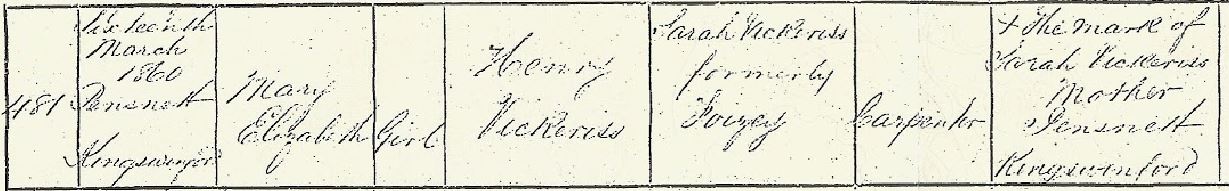 481
Sixteenth
March
1860
Pensnett
Kingswinford
Mary
Elizabeth
Girl
Henry
Vickeriss
Sarah Vickeriss
formerly
Carpenter
X The mark of
Sarah Vickeriss
Mother
Pensnett
Kingswinford